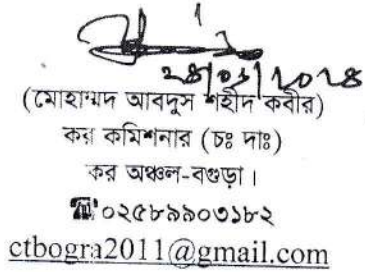 (মোহাম্মদ আবদুস শহীদ কবীর)
কর কমিশনার (চঃ দাঃ)
কর অঞ্চল-বগুড়া।
☎০২৫৮৯৯০৩১৮২
ctbogra2011@gmail.com